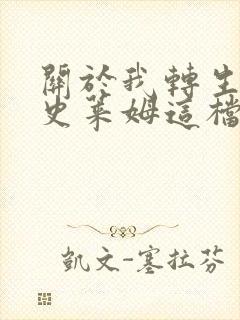 關於我轉生
史萊姆這檔
凱文-塞拉芬